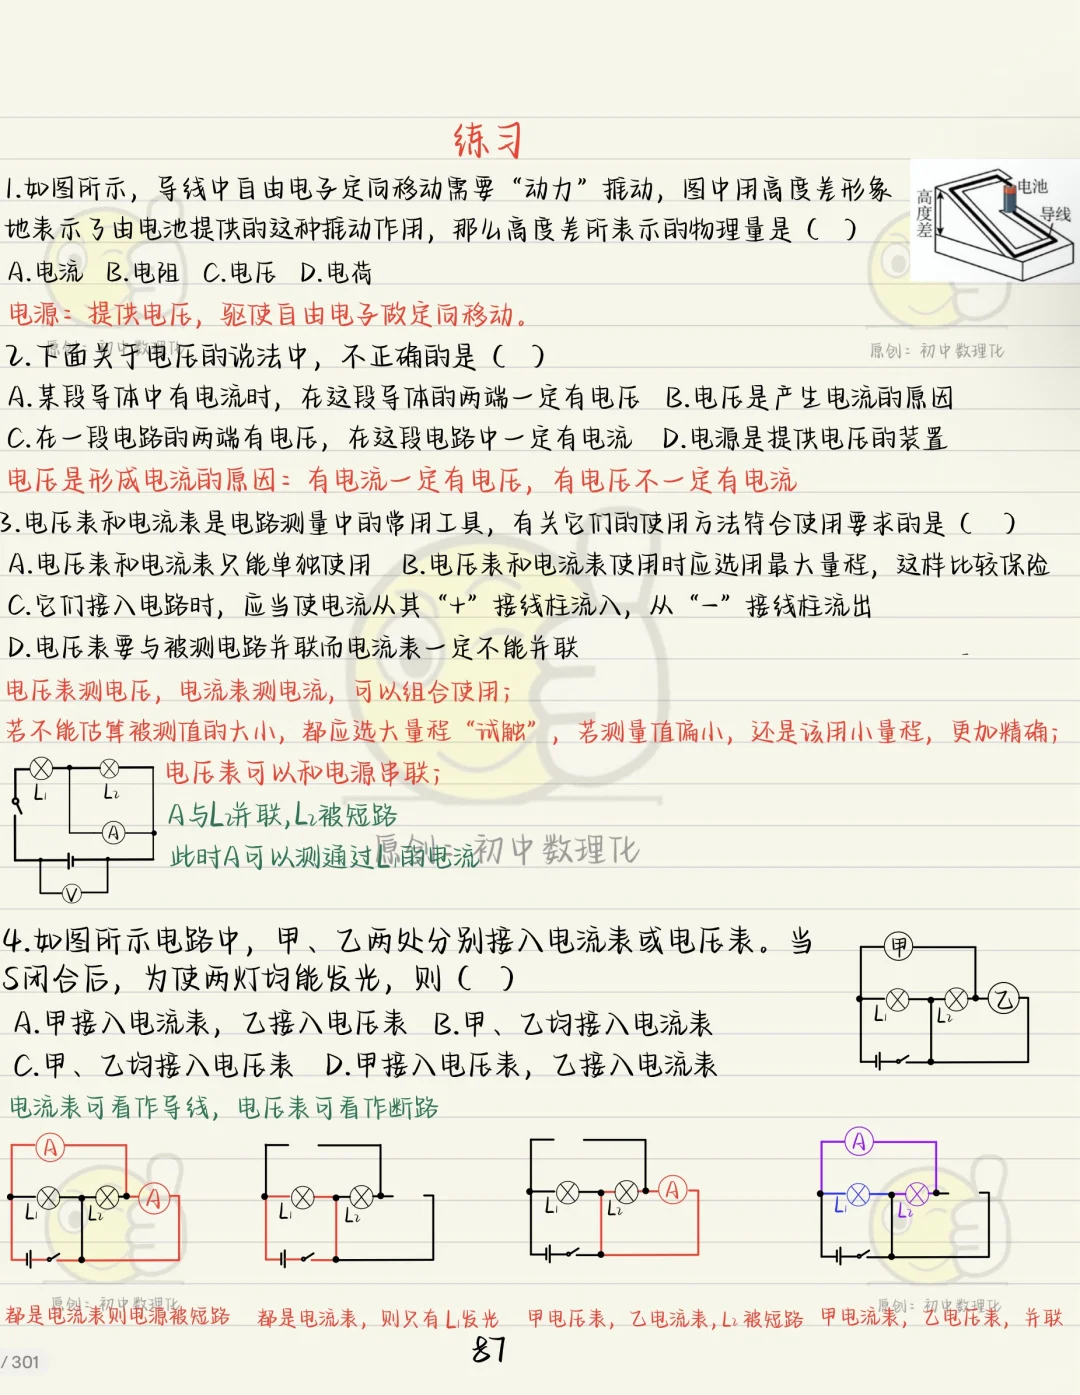 练习
1.如图所示，导线中自由电子定向移动需要“动力”推动，图中用高度差形象
地表示了由电池提供的这种推动作用，那么高度差所表示的物理量是（ ）
高度差
电池
导线
A.电流 B.电阻 C.电压 D.电荷
电源：提供电压，驱使自由电子做定向移动。
原创：初中数理化
原创：初中数理化
2.下面关于电压的说法中，不正确的是（ ）
A.某段导体中有电流时，在这段导体的两端一定有电压 B.电压是产生电流的原因
C.在一段电路的两端有电压，在这段电路中一定有电流 D.电源是提供电压的装置
电压是形成电流的原因：有电流一定有电压，有电压不一定有电流
3.电压表和电流表是电路测量中的常用工具，有关它们的使用方法符合使用要求的是（ ）
A.电压表和电流表只能单独使用 B.电压表和电流表使用时应选用最大量程，这样比较保险
C.它们接入电路时，应当使电流从其“+”接线柱流入，从“-”接线柱流出
D.电压表要与被测电路并联而电流表一定不能并联
电压表测电压，电流表测电流，可以组合使用；
若不能估算被测值的大小，都应选大量程“试触”，若测量值偏小，还是该用小量程，更加精确；
电压表可以和电源串联；
L₁ L₂
A
V
A与L₂并联,L₂被短路
此时A可以测通过L₁的电流
原创：初中数理化
4.如图所示电路中，甲、乙两处分别接入电流表或电压表。当
S闭合后，为使两灯均能发光，则（ ）
甲
L₁ L₂ 乙
A.甲接入电流表，乙接入电压表 B.甲、乙均接入电流表
C.甲、乙均接入电压表 D.甲接入电压表，乙接入电流表
电流表可看作导线，电压表可看作断路
A A
L₁ L₂ A
L₁ L₂
L₁ L₂ A
L₁ L₂
原创：初中数理化
原创：初中数理化
都是电流表则电源被短路
都是电流表，则只有L₁发光
甲电压表，乙电流表,L₂被短路
甲电流表，乙电压表，并联
87
/ 301